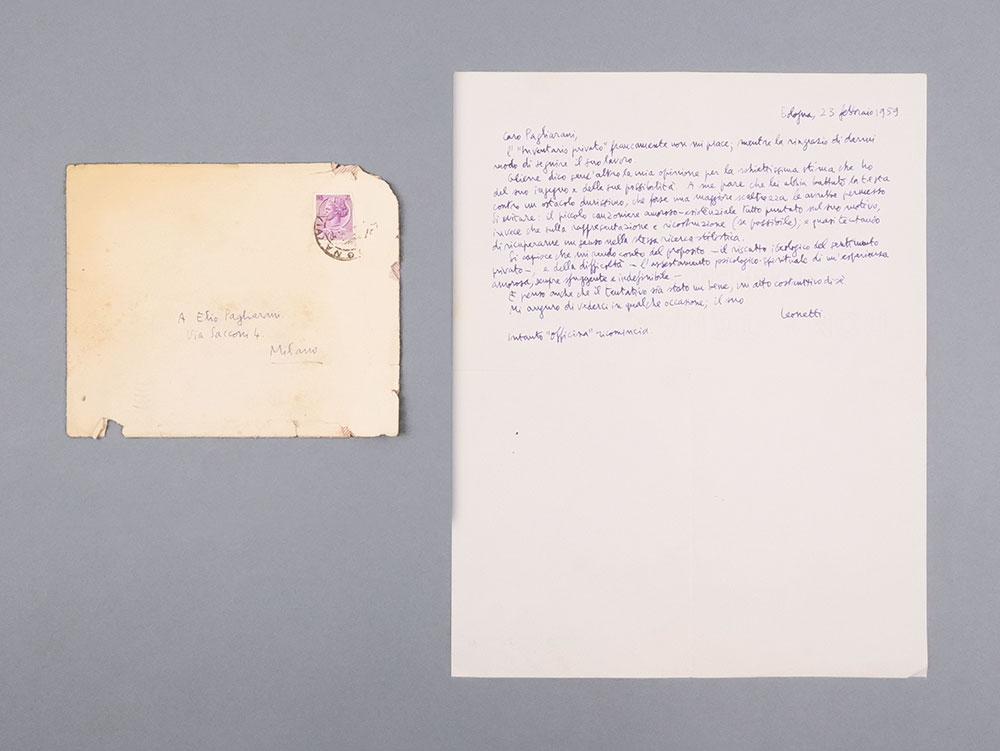 A Elio Pagliarani
Via Sacconi 4.
Milano
Bologna, 23 febbraio 1959
Caro Pagliarani,
l'"Inventario privato" francamente non mi piace; mentre la ringrazio di darmi
modo di seguire il suo lavoro.
Gliene dico senz'altro la mia opinione per la schiettissima stima che ho
del suo ingegno e delle sue possibilità. A me pare che lei abbia battuto la testa
contro un ostacolo durissimo, che forse una maggiore scaltrezza le avrebbe permesso
di evitare: il piccolo canzoniere amoroso-esistenziale tutto puntato sul suo motivo,
invece che sulla rappresentazione e ricostruzione (se possibile), e quasi tentando
di recuperarne un senso nella stessa ricerca stilistica.
Si capisce che mi rendo conto del proposto – il riscatto ideologico del sentimento
privato –, e della difficoltà – l'assestamento psicologico-spirituale di un'esperienza
amorosa, sempre sfuggente e indefinibile –
E penso anche che il tentativo sia stato un bene, un atto costruttivo di sé
Mi auguro di vederci in qualche occasione; il suo
Leonetti.
Intanto "Officina" ricomincia.